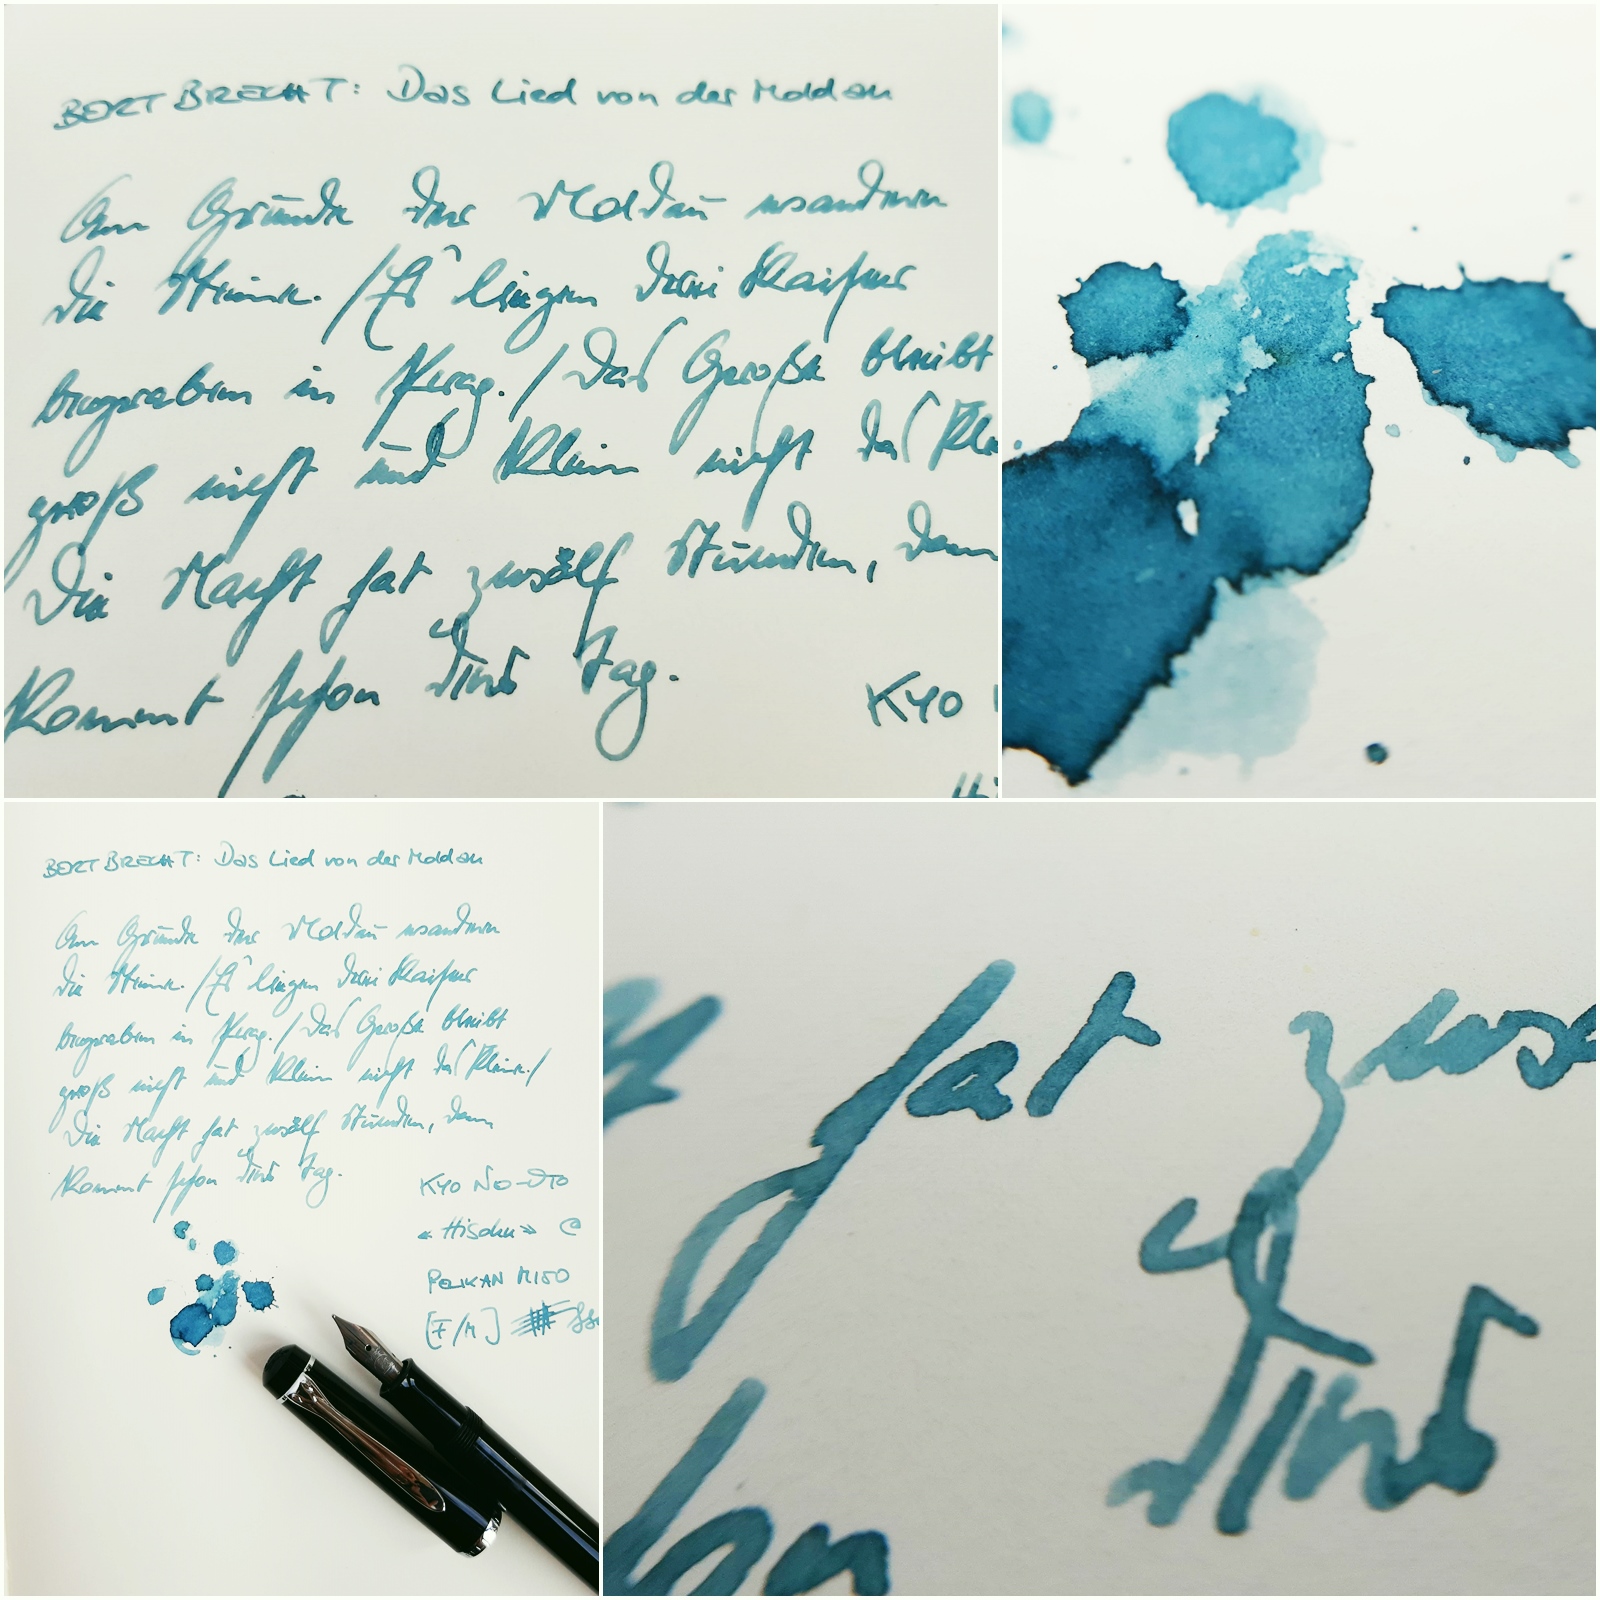 BERT BRECHT: Das Lied von der Moldau
Am Grunde der Moldau wandern
die Steine. / Es liegen drei Kaiser
begraben in Prag. / Das Große bleibt
groß nicht und klein nicht das Kle
Die Nacht hat zwölf Stunden, dann
kommt schon Tag.
KYO
BERT BRECHT: Das Lied von der Moldau
Am Grunde der Moldau wandern
die Steine. / Es liegen drei Kaiser
begraben in Prag. / Das Große bleibt
groß nicht und klein nicht das Kleine. /
Die Nacht hat zwölf Stunden, dann
kommt schon Tag.
KYO NO-OTO
«Hisoku» @
PELIKAN M150
[F/M]
hat zwö